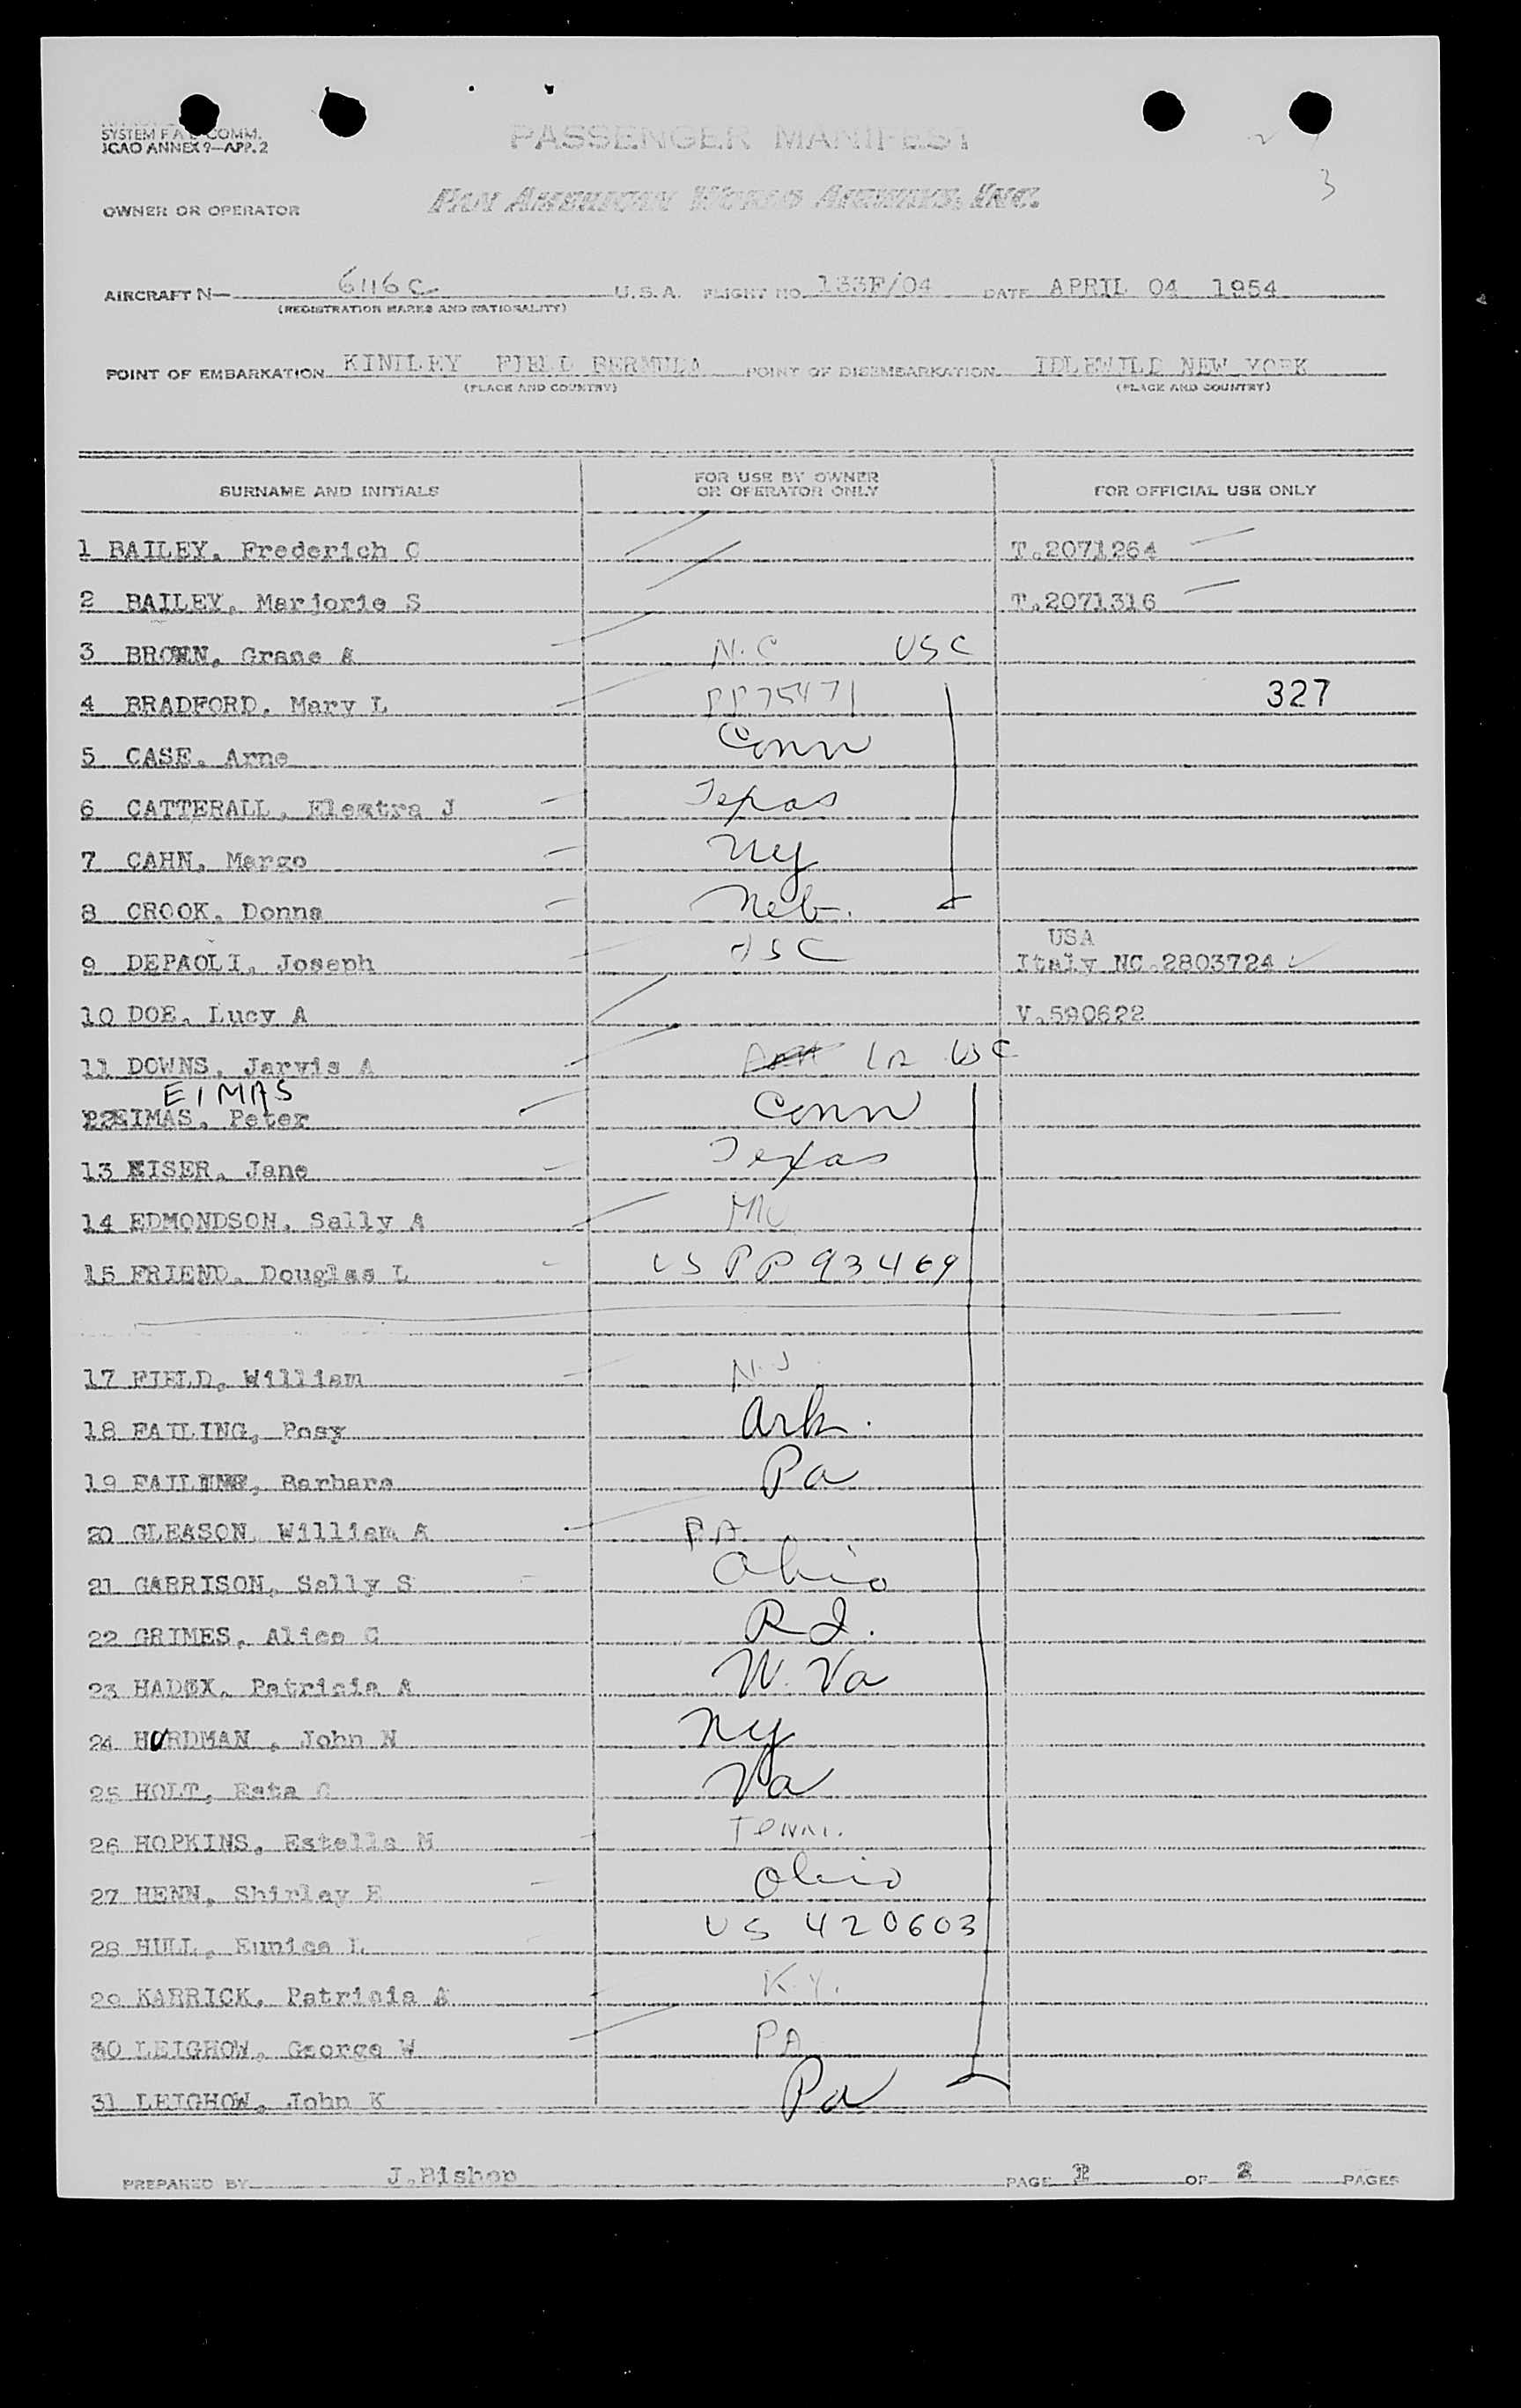 SYSTEM F A L COMM.
ICAO ANNEX 9—APP. 2
PASSENGER MANIFEST
3
OWNER OR OPERATOR PAN AMERICAN WORLD AIRWAYS, INC.
AIRCRAFT N— 6116C U.S.A. FLIGHT NO. 133F/04 DATE APRIL 04 1954
(REGISTRATION MARKS AND NATIONALITY)
POINT OF EMBARKATION KINDLEY FIELD BERMUDA POINT OF DISEMBARKATION IDLEWILD NEW YORK
(PLACE AND COUNTRY) (PLACE AND COUNTRY)
SURNAME AND INITIALS FOR USE BY OWNER OR OPERATOR ONLY FOR OFFICIAL USE ONLY
1 BAILEY, Frederich C T.2071264
2 BAILEY, Marjorie S T.2071316
3 BROWN, Grace A N.C USC
4 BRADFORD, Mary L PP75471 327
5 CASE, Arne Conn
6 CATTERALL, Electra J Texas
7 CAHN, Margo Ny
8 CROOK, Donna Neb.
USA
9 DEPAOLI, Joseph USC Italy NC.2803724
10 DOE, Lucy A V.590622
11 DOWNS, Jarvis A LA USC
EIMAS
12 EIMAS, Peter Conn
13 EISER, Jane Texas
14 EDMONDSON, Sally A MO
15 FRIEND, Douglas L US PP 93469
17 FIELD, William N.J.
18 FAILING, Posy Ark.
19 Barbara Pa
20 GLEASON, William A PA
21 GARRISON, Sally S Ohio
22 GRIMES, Alice C R I.
23 HADOX, Patricia A W. Va
24 HURDMAN, John N Ny
25 HOLT, Esta C Va
26 HOPKINS, Estella M Tenn.
27 HENN, Shirley E Ohio
28 HULL, Eunice L US 420603
29 KARRICK, Patricia A K.Y.
30 LEIGHOW, George W PA
31 LEIGHOW, John K Pa
PREPARED BY J.Bishop PAGE OF 2 PAGES